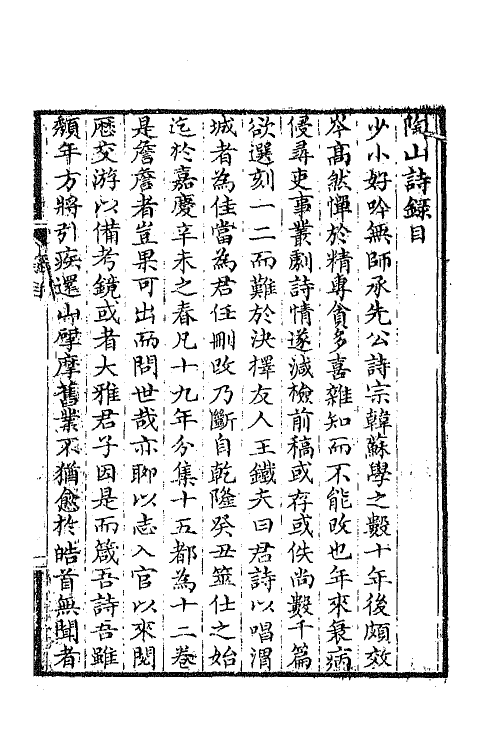 陶山詩錄目
少小好吟無師承先公詩宗韓蘇學之數十年後頗效
岑高然憚於精專貪多喜雜知而不能改也年來衰病
侵尋吏事叢劇詩情遂減檢前稿或存或佚尚數千篇
欲選刻一二而難於決擇友人王鐵夫曰君詩以唱渭
城者為佳當為君任刪改乃斷自乾隆癸丑筮仕之始
迄於嘉慶辛未之春凡十九年分集十五都為十二卷
是詹詹者豈果可出而問世哉亦聊以志入官以來閱
歷交游以備考鏡或者大雅君子因是而箴吾詩吾雖
頹年方將引疾還山摩摩舊業不猶愈於皓首無聞者